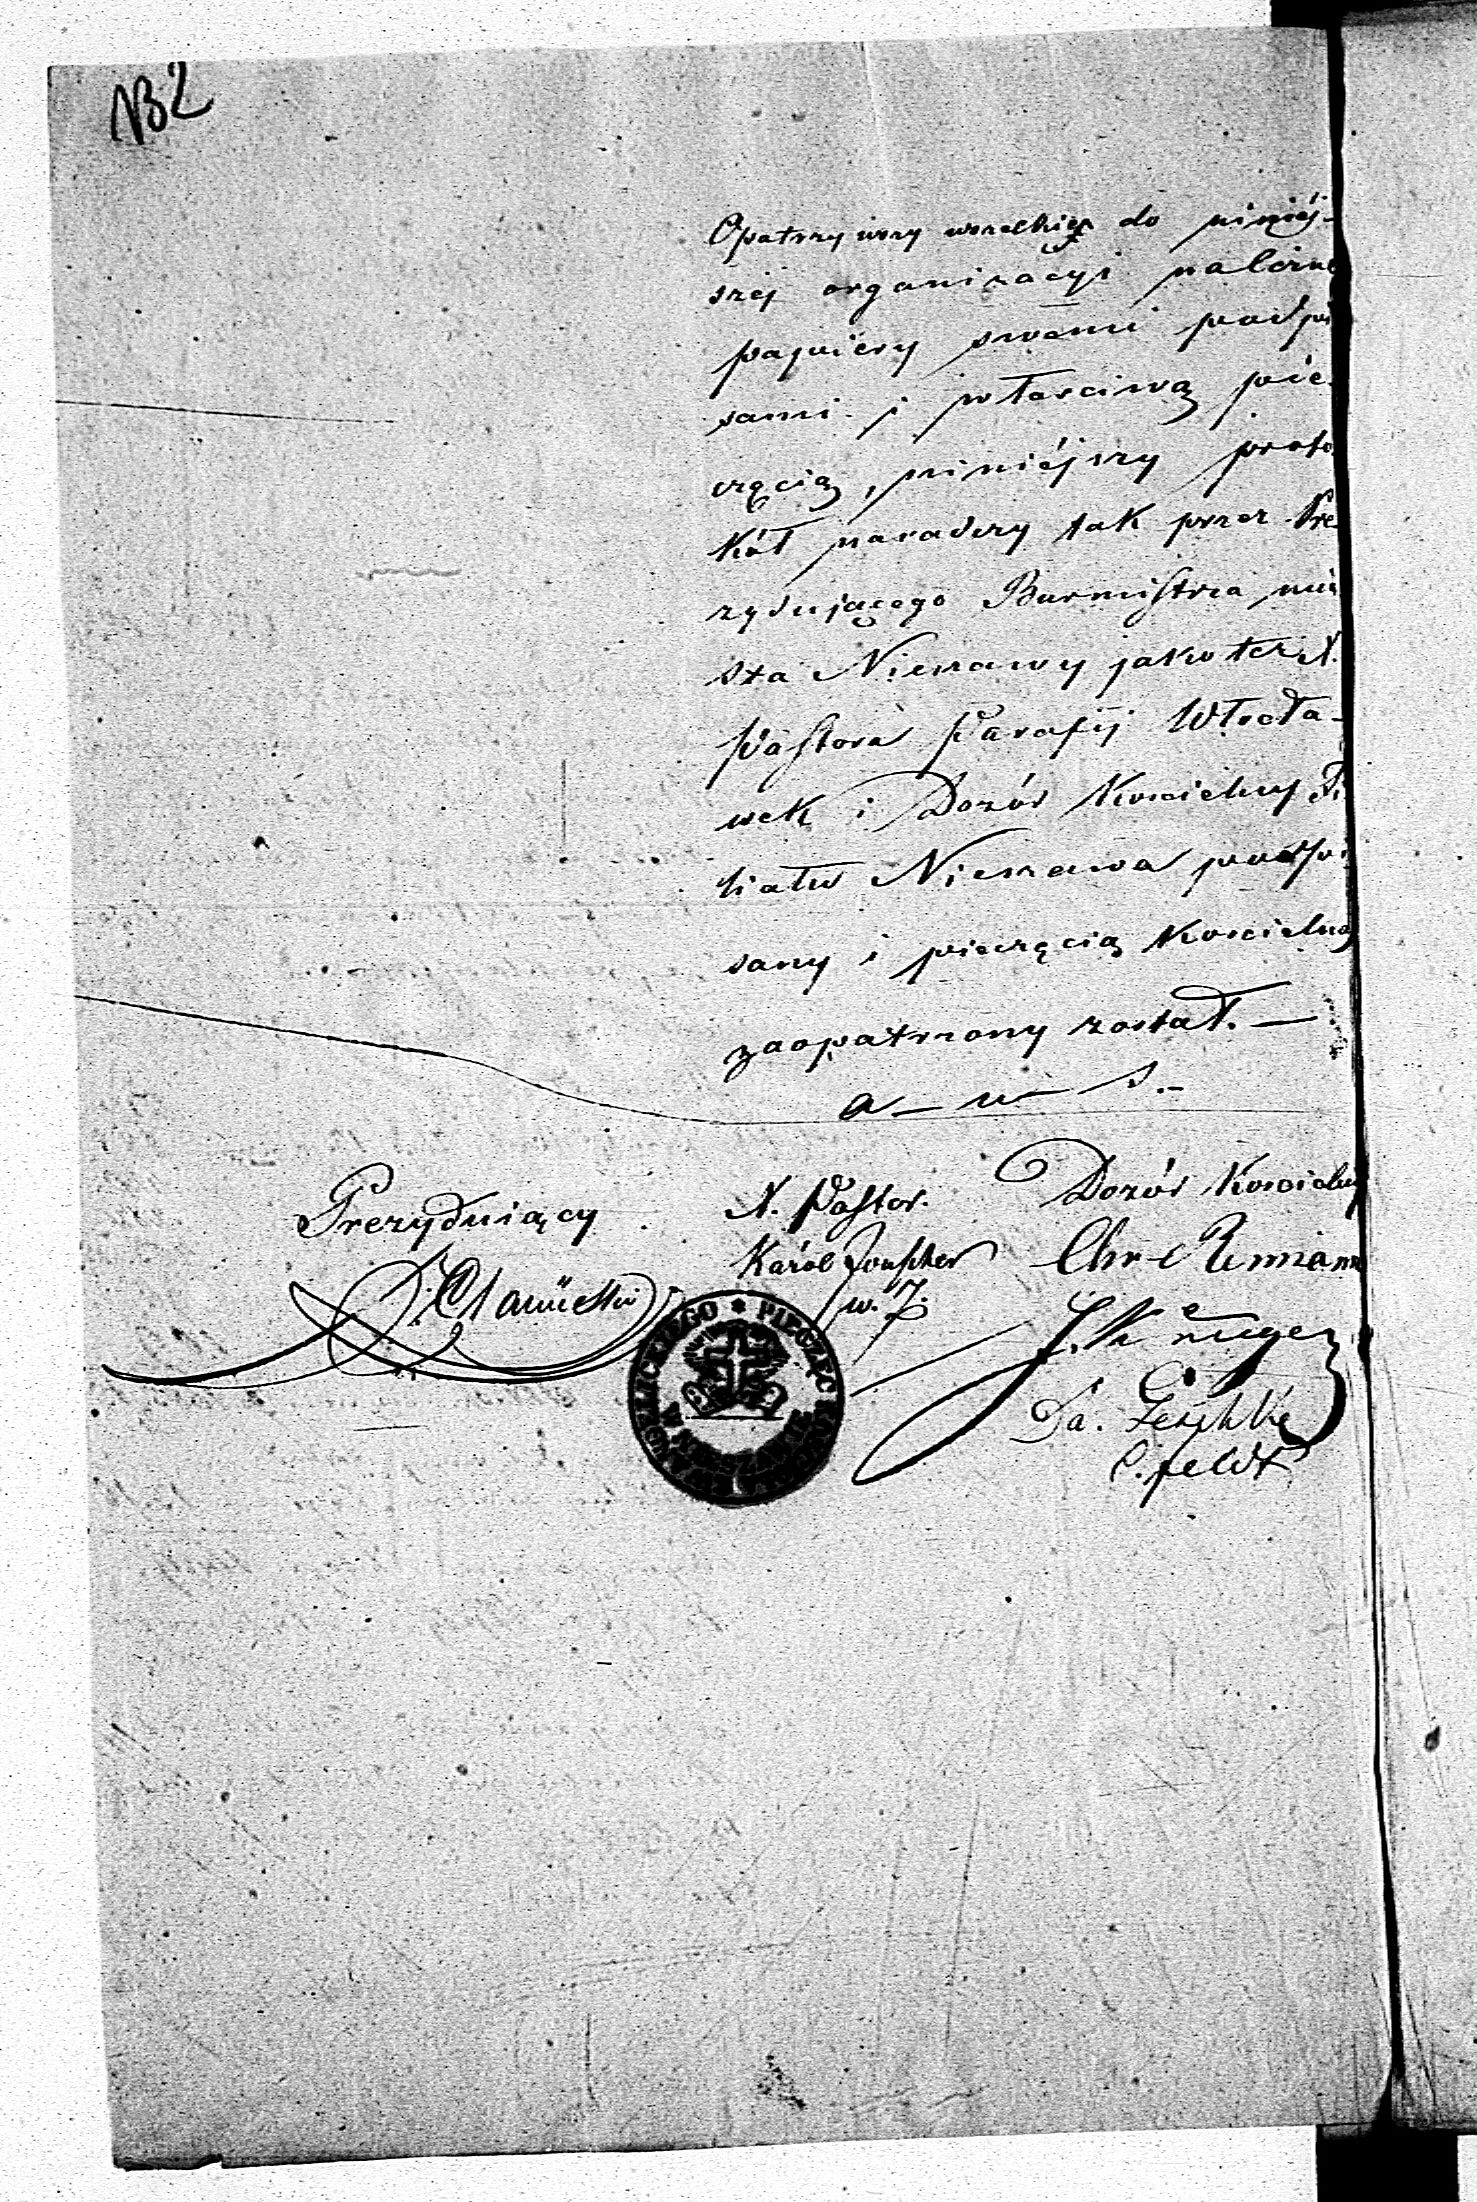 132
Opatrzywszy wszelkie do niniéj-
széj organizacyi należne
papiéry swemi podpi
sami i właściwą pie-
częcią, niniéjszy proto
kół naradczy tak przez Pre
zydującego Burmistrza mia
sta Nieszawy jakoteż N.
Pastora Parafij Włocła-
wek i Dozór Kościelny Fi
liału Nieszawa podpi
sany i pieczęcią Kościelną
zaopatrzony został. —
a — u — s. —
Prezyduiący N. Pastor. Dozór Kościelny
Karól
w. Chr
J. Krüger
Da.
C. feldt
PIECZĘĆ